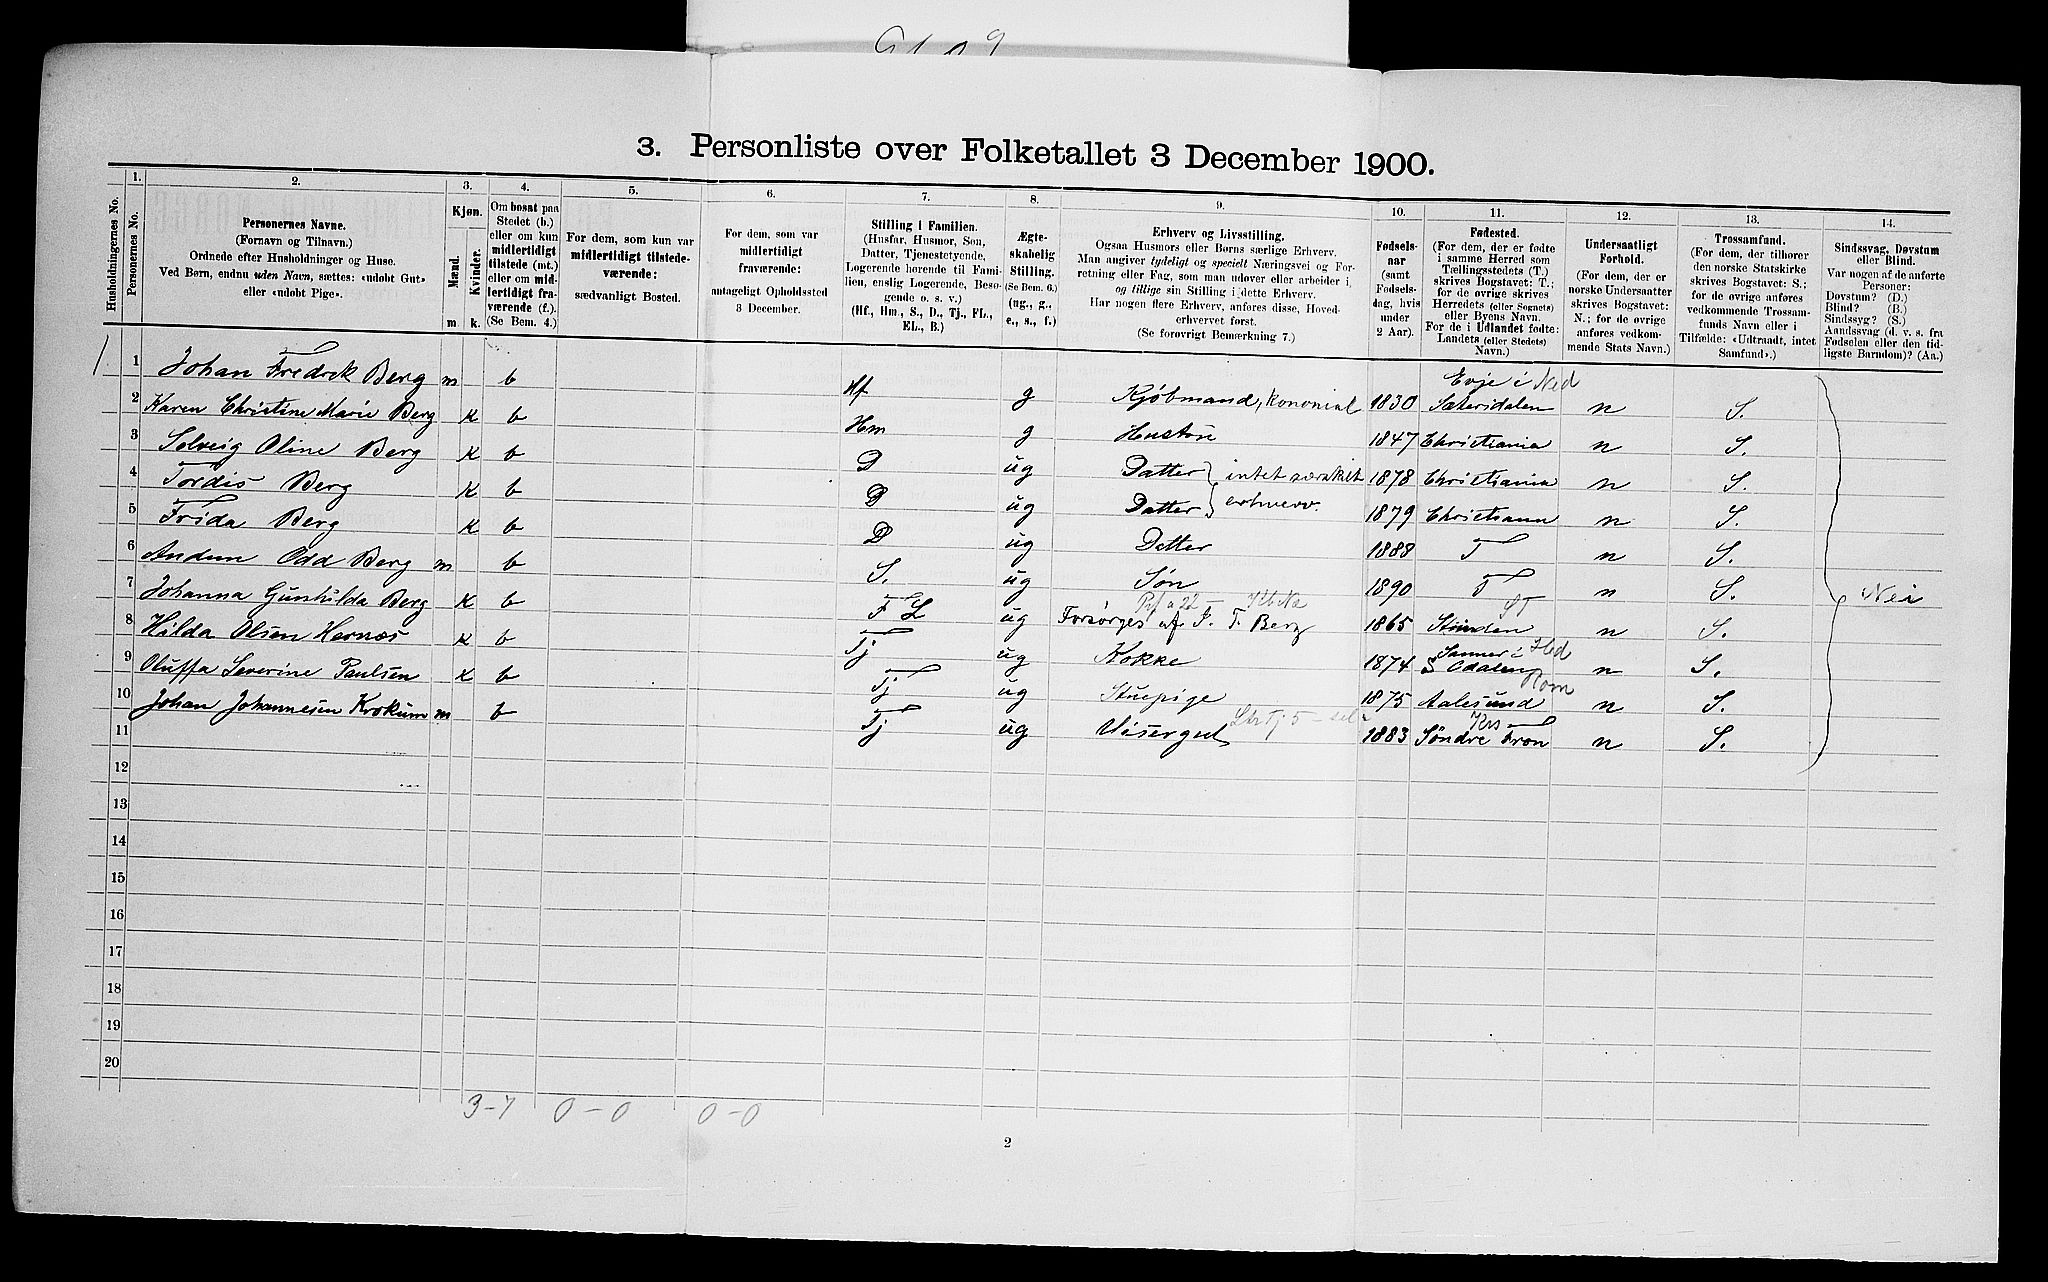 3. Personliste over Folketallet 3 December 1900.
Husholdningernes No.
1.
Personernes No.
2.
Personernes Navne.
(Fornavn og Tilnavn.)
Ordnede efter Husholdninger og Huse.
Ved Børn, endnu uden Navn, sættes: «udøbt Gut»
eller «udøbt Pige».
3.
Kjøn.
Mænd.
Kvinder.
m. k.
4.
Om bosat paa
Stedet (b.)
eller om kun
midlertidigt
tilstede (mt.)
eller om mid-
lertidigt fra-
værende (f.).
(Se Bem. 4.)
5.
For dem, som kun var
midlertidigt tilstede-
værende:
sædvanligt Bosted.
6.
For dem, som var
midlertidigt
fraværende:
antageligt Opholdssted
3 December.
7.
Stilling i Familien.
(Husfar, Husmor, Søn,
Datter, Tjenestetyende,
Logerende hørende til Fami-
lien, enslig Logerende, Besø-
gende o. s. v.)
(Hf., Hm., S., D., Tj., FL.,
EL., B.)
8.
Ægte-
skabelig
Stilling.
(Se Bem. 6.)
(ug., g.,
e., s., f.)
9.
Erhverv og Livsstilling.
Ogsaa Husmors eller Børns særlige Erhverv.
Man angiver tydeligt og specielt Næringsvei og For-
retning eller Fag, som man udøver eller arbeider i,
og tillige sin Stilling i dette Erhverv.
Har nogen flere Erhverv, anføres disse, Hoved-
erhvervet først.
(Se forøvrigt Bemærkning 7.)
10.
Fødsels-
aar
(samt
Fødsels-
dag, hvis
under
2 Aar).
11.
Fødested.
(For dem, der er fødte
i samme Herred som
Tællingsstedets (T.)
skrives Bogstavet: T.;
for de øvrige skrives
Herredets (eller Sognets)
eller Byens Navn.
For de i Udlandet fødte:
Landets (eller Stedets)
Navn.)
12.
Undersaatligt
Forhold.
(For dem, der er
norske Undersaatter
skrives Bogstavet:
N.; for de øvrige
anføres vedkom-
mende Stats Navn.)
13.
Trossamfund.
(For dem, der tilhører
den norske Statskirke
skrives Bogstavet: S.;
for de øvrige anføres
vedkommende Trossam-
funds Navn eller i
Tilfælde: «Udtraadt, intet
Samfund».)
14.
Sindssvag, Døvstum
eller Blind.
Var nogen af de anførte
Personer:
Døvstum? (D.)
Blind? (B.)
Sindssyg? (S.)
Aandssvag (d. v. s. fra
Fødselen eller den tid-
ligste Barndom)? (Aa.)
1 1 Johan Fredrek Berg m b Hf g Kjøbmand, kononial 1830 Evje i Ned Sætersdalen n S.
2 Karen Christine Marie Berg K b Hm g Hustru 1847 Christiania n S.
3 Solveig Oline Berg K b D ug Datter intet særskilt 1878 Christiania n S.
4 Tordis Berg K b D ug Datter erhverv. 1879 Christiania n S.
5 Frida Berg K b D ug Datter 1888 T n S.
6 Andun Odd Berg m b S. ug Søn 1890 T n S. Nei
7 Johanna Gunhilda Berg K b F L ug Forsørges af J. F. Berg 1865 ST n S.
8 Hilda Olsen Hernæs K b Tj ug Kokke 1874 Sanner i Hed S Odalen n S.
9 Oluffa Severine Paulsen K b Tj ug Stuepige 1875 Rom Aalesund n S.
10 Johan Johannesen Krokum m b Tj ug Visergut 1883 Krs Søndre Fron n S.
11
12
13
14
15
16
17
18
19
20
3-7 0-0 0-0
2